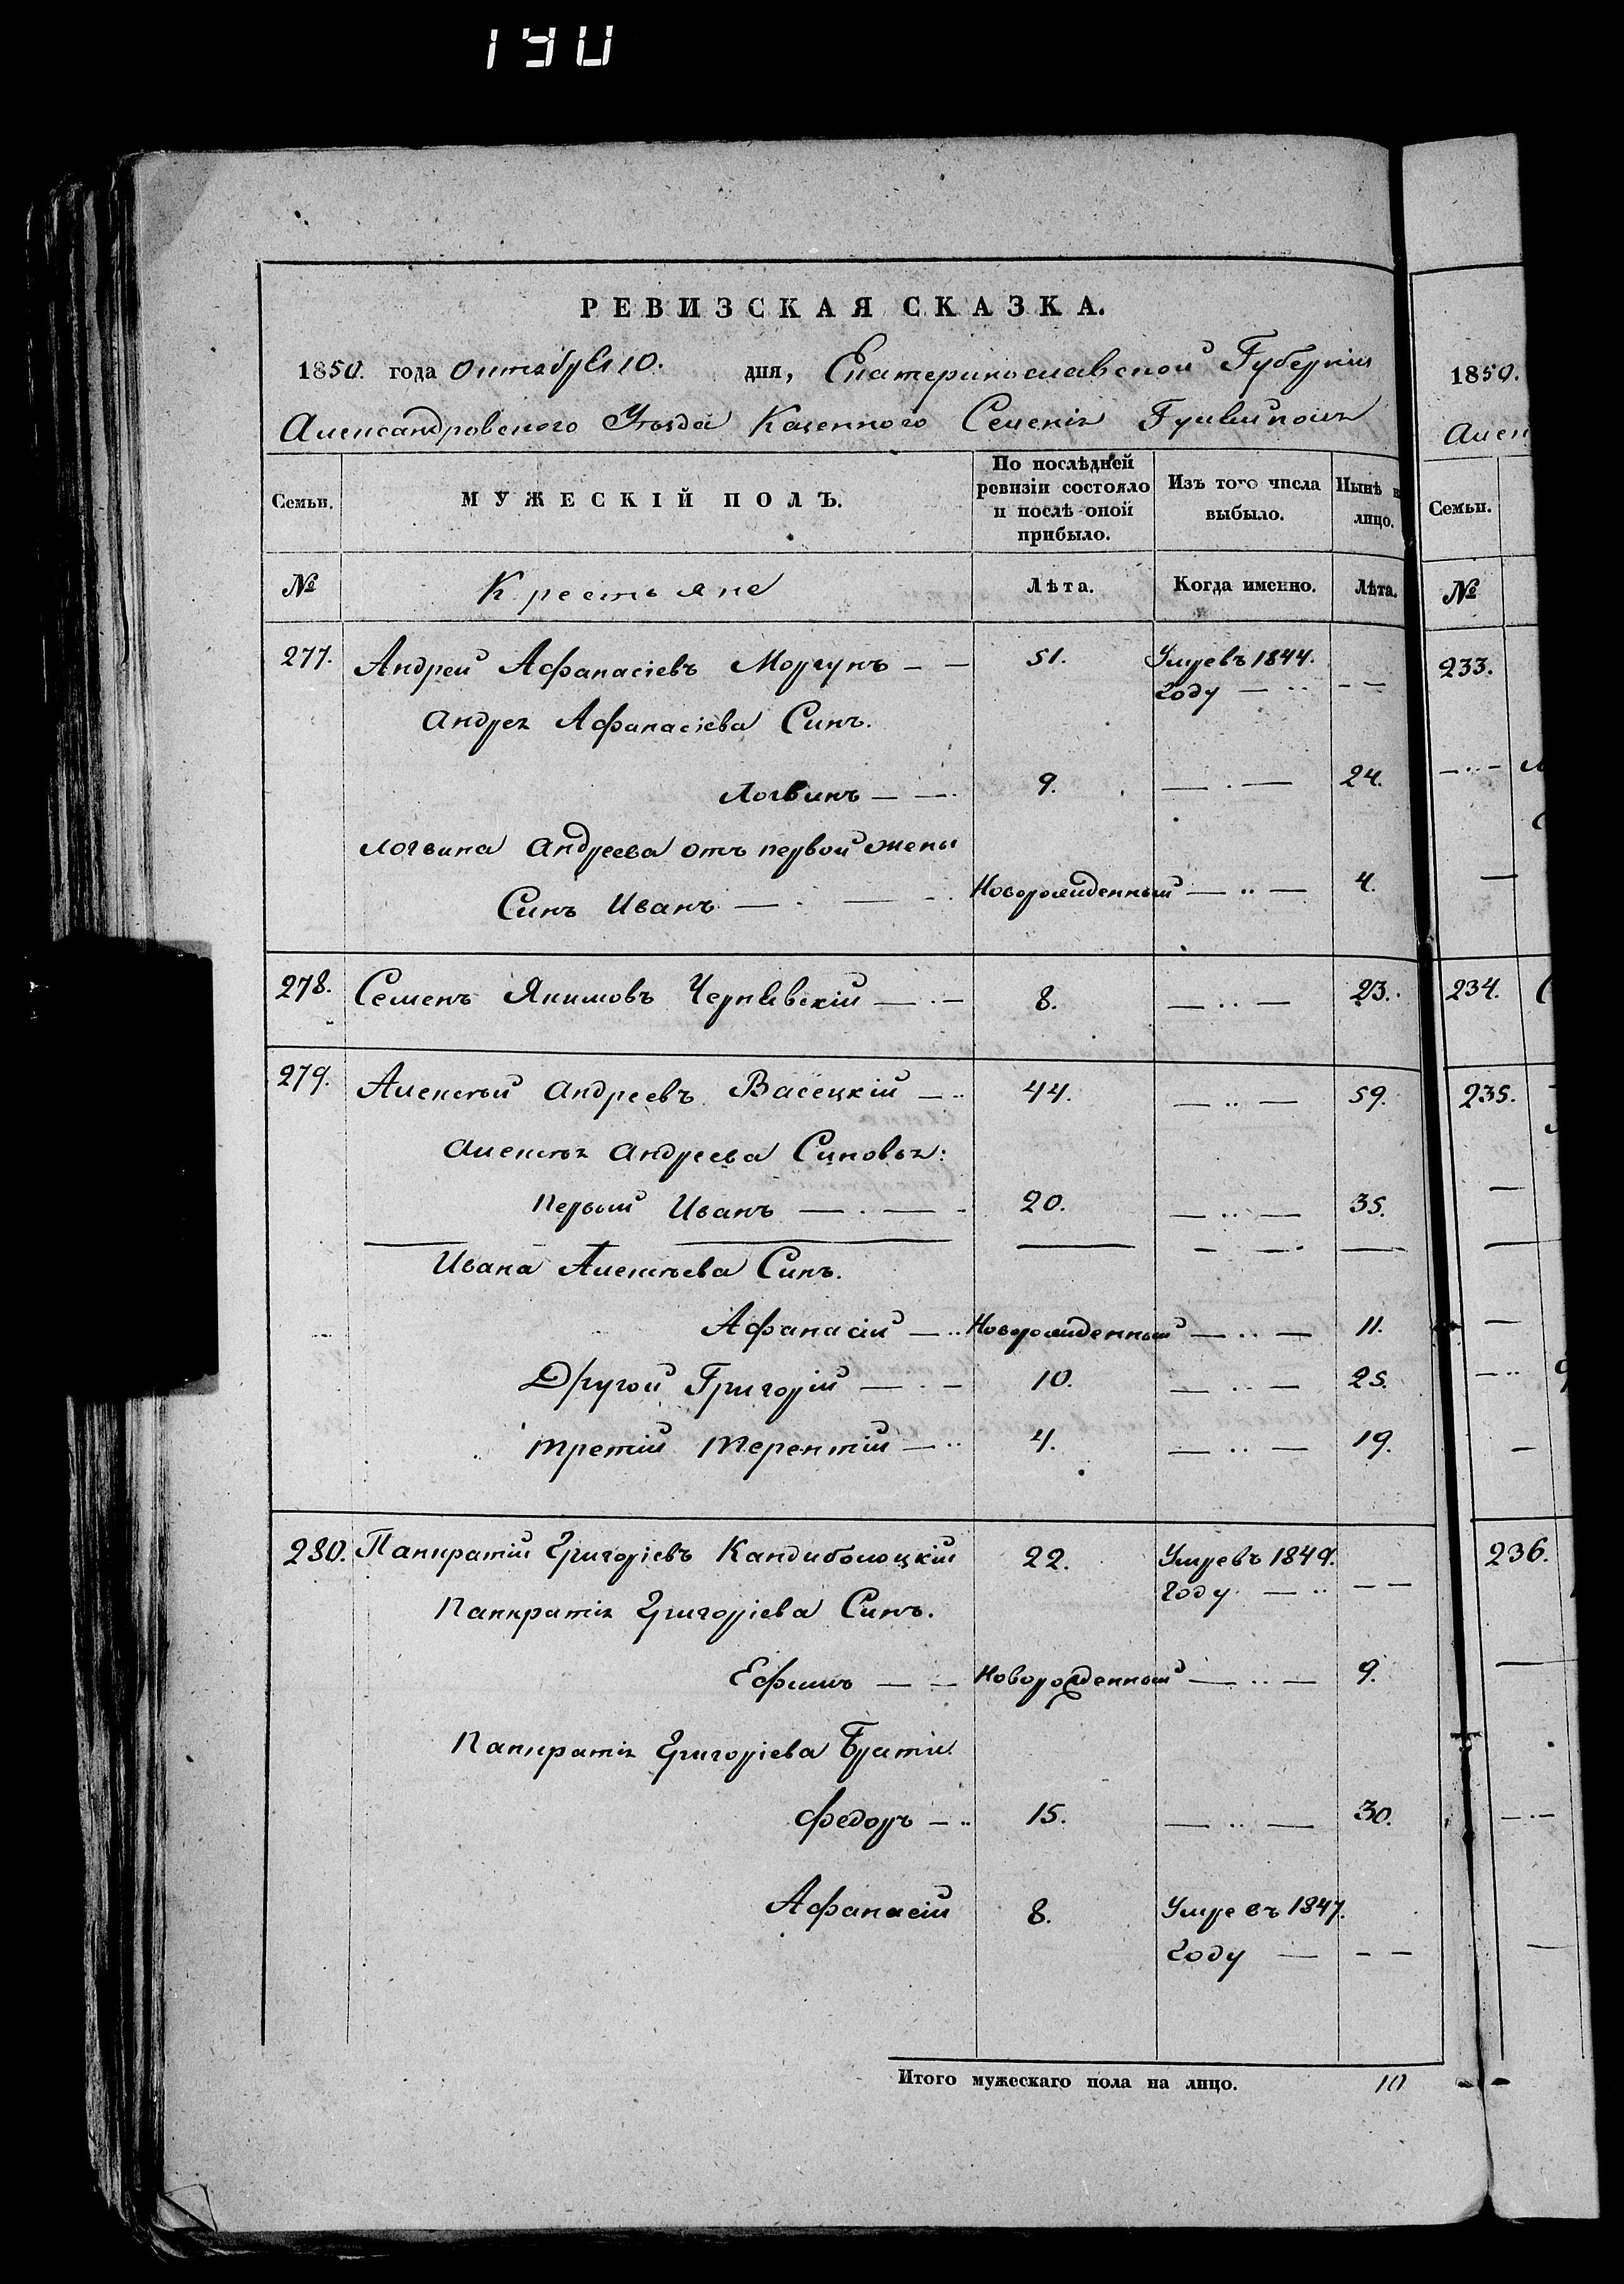 190
РЕВИЗСКАЯ СКАЗКА.
1850. года Октября 10. дня, Екатеринославской Губерніи
Александровского Уезда Казенного Селенія Гуляйполя
Семьи.
МУЖЕСКІЙ ПОЛЪ.
По послѣдней ревизіи состояло и послѣ оной прибыло.
Изъ того числа выбыло.
Нынѣ н лицо.
№
Крестьяне
Лѣта.
Когда именно.
Лѣта.
277. Андрей Афанасіевъ Моргунъ — — 51. Умревъ 1844. году — ·· — —
Андрея Афанасіева Синъ.
Логвинъ — — 9. — · — 24.
Логвина Андреева отъ первой жены
Синъ Иванъ — · — Новорожденный — ·· — 4.
278. Семенъ Якимовъ Чернявскій — · — 8. — ·· — 23.
279. Алексѣй Андреевъ Васецкій — ·· 44. — ·· — 59.
Алексѣя Андреева Синовья:
Первый Иванъ — · — 20. — ·· — 35.
Ивана Алексѣева Синъ.
Афанасій — ·· Новорожденный — ·· — 11.
Другой Григорій — · — 10. — ·· — 25.
Третій Терентій — ·· 4. — ·· — 19.
280. Панкратій Григоріевъ Кандиболоцкій 22. Умревъ 1849. году — ·· — —
Панкратія Григоріева Синъ.
Ефимъ — — Новорожденный — ·· — 9.
Панкратія Григоріева Братья
Федоръ — ·· 15. — ·· — 30.
Афанасій 8. Умревъ 1847. году — — —
Итого мужескаго пола на лицо. 10
1850.
Алек
Семьи.
№
233.
234.
235.
236.